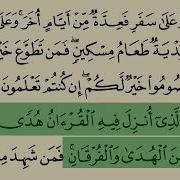 عَلَىٰ سَفَرٍ فَعِدَّةٌ مِّنْ أَيَّامٍ أُخَرَ ۚ وَعَلَى
فِدْيَةٌ طَعَامُ مِسْكِينٍ ۖ فَمَن تَطَوَّعَ خَيْ
صُومُوا۟ خَيْرٌ لَّكُمْ ۖ إِن كُنتُمْ تَعْلَمُونَ
لَّذِىٓ أُنزِلَ فِيهِ ٱلْقُرْءَانُ هُدًى
مِّنَ ٱلْهُدَىٰ وَٱلْفُرْقَانِ ۚ فَمَن شَهِدَ مِ